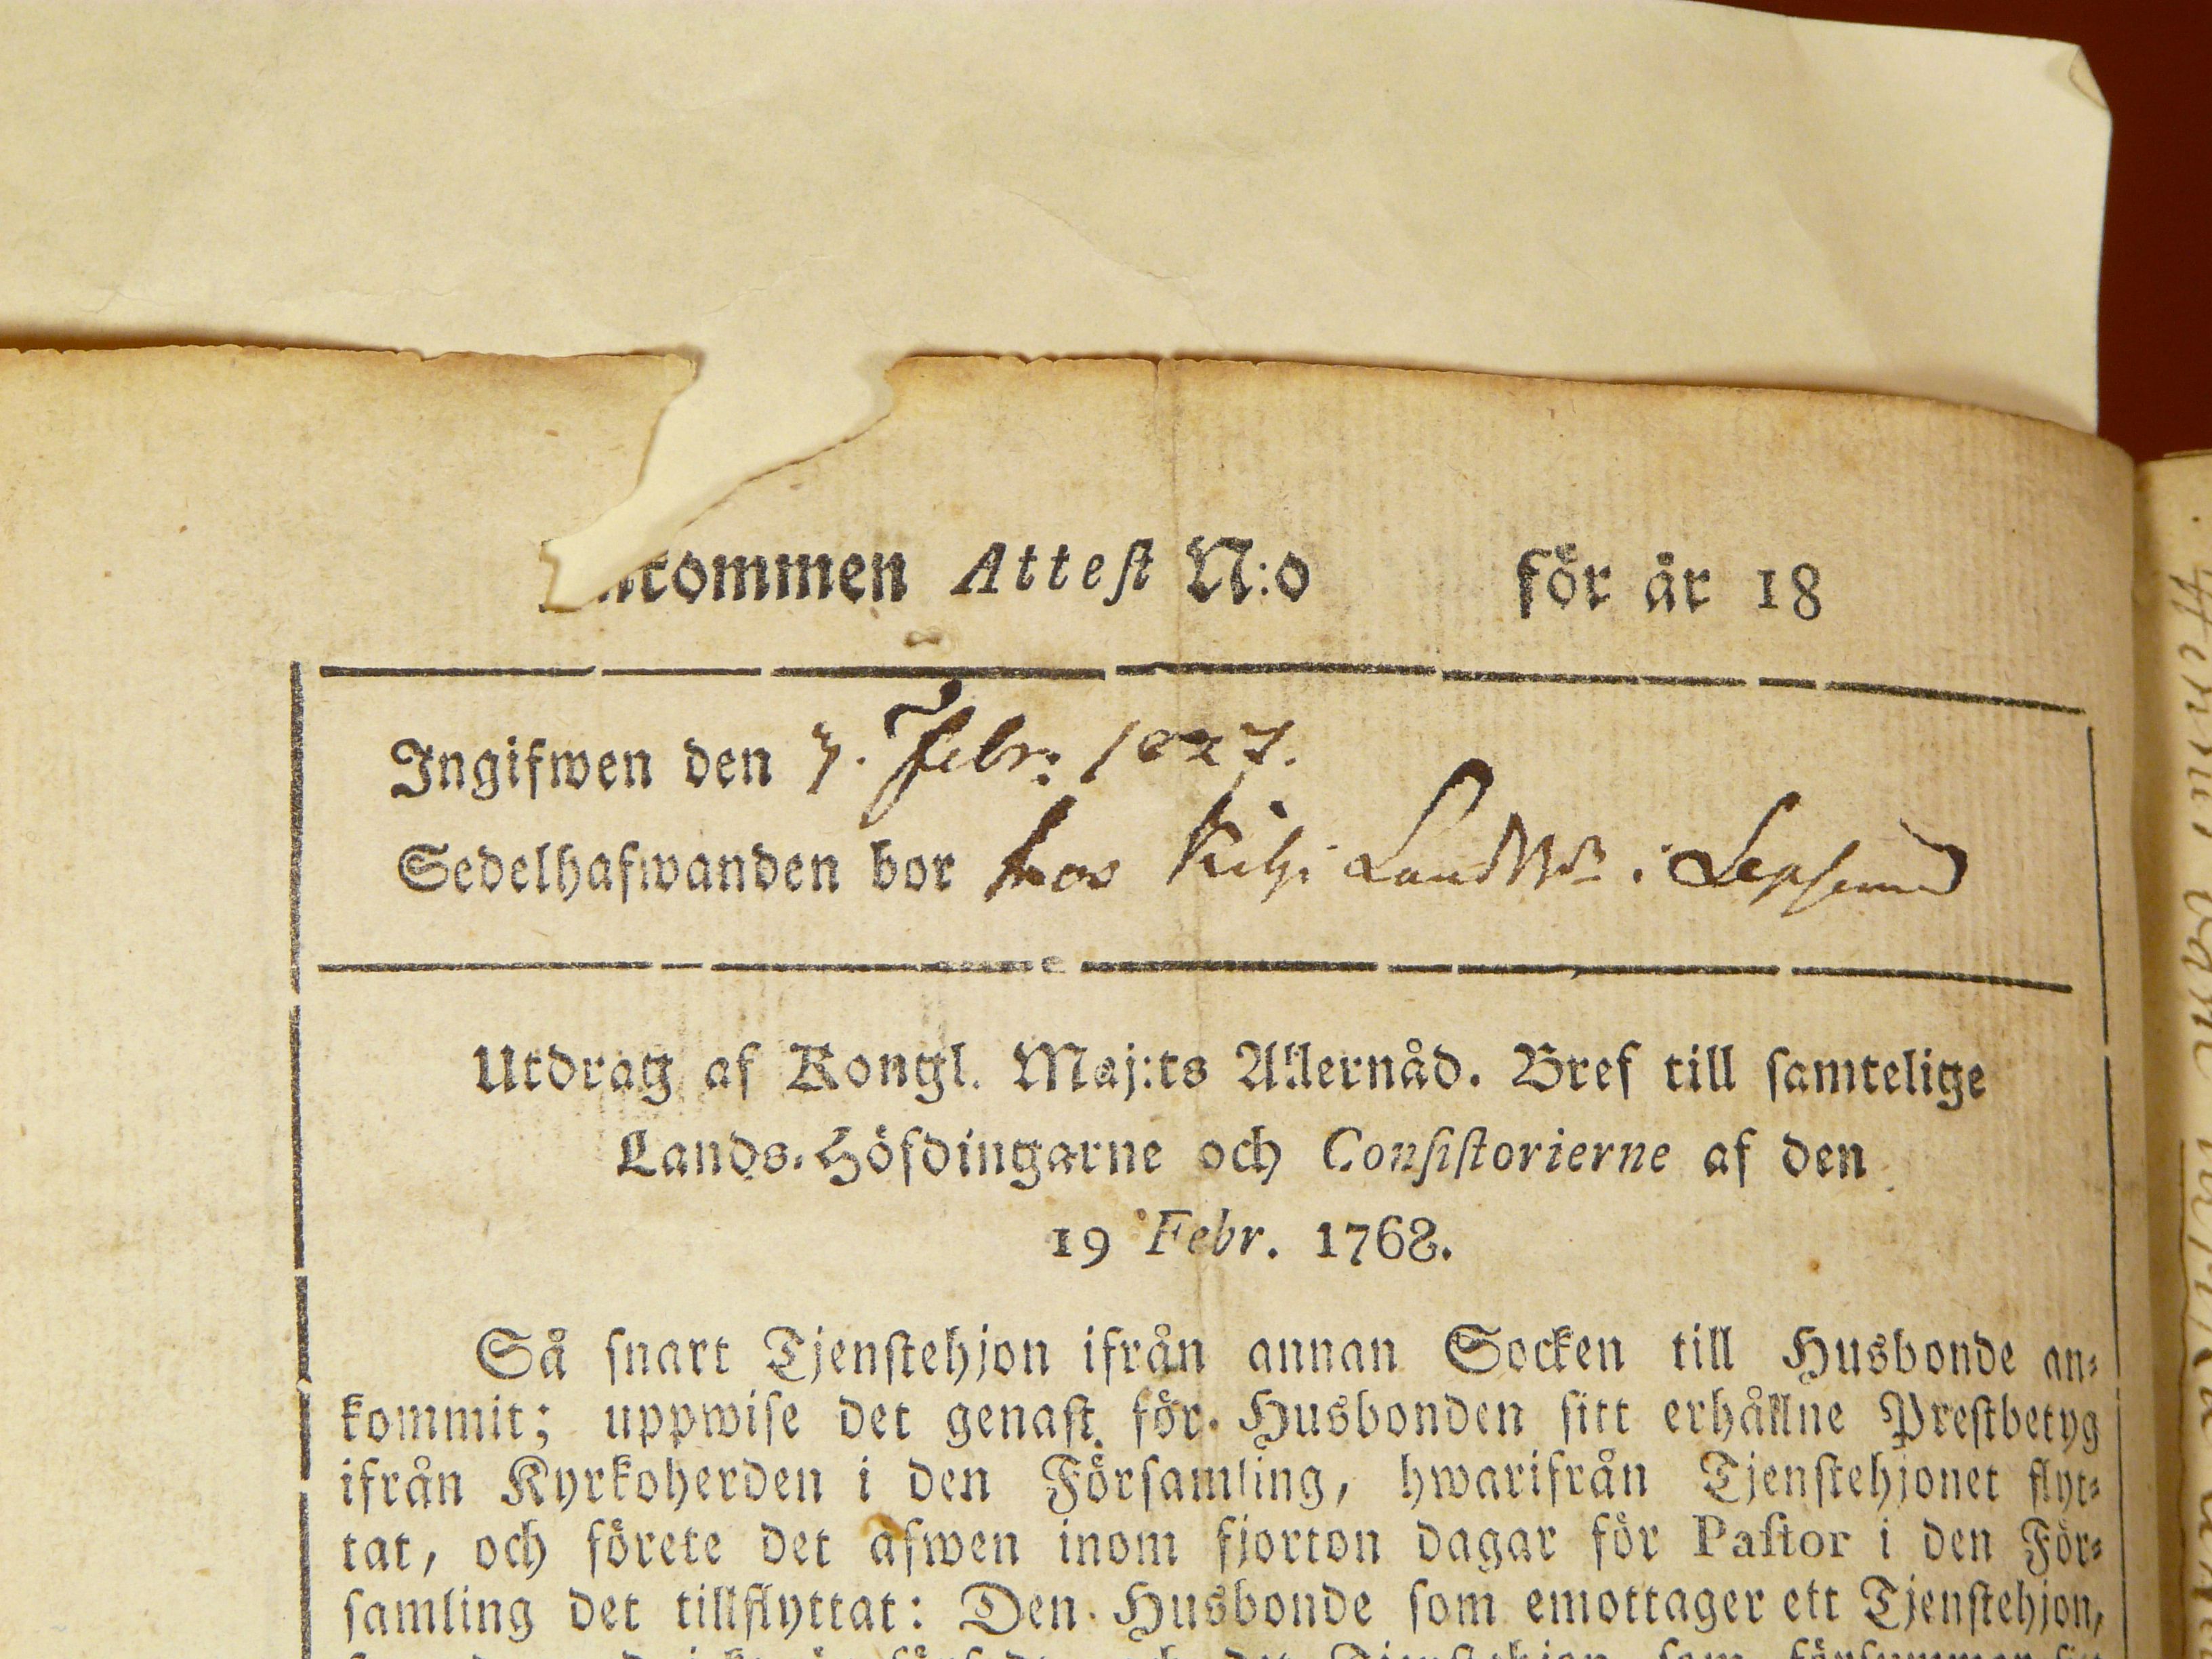 kommen Attest N:o för år 18
Ingifwen den 7. Febr: 1827.
Sedelhafwanden bor hos i
Utdrag af Kongl. Maj:ts Allernåd. Bref till samtelige
Lands-Höfdingarne och Consistorierne af den
19 Febr. 1768.
Så snart Tjenstehjon ifrån annan Socken till Husbonde an-
kommit; uppwise det genast för Husbonden sitt erhållne Prestbetyg
ifrån Kyrkoherden i den Församling, hwarifrån Tjenstehjonet flyt-
tat, och förete det äfwen inom fjorton dagar för Pastor i den För-
samling det tillflyttat: Den Husbonde som emottager ett Tjenstehjon,